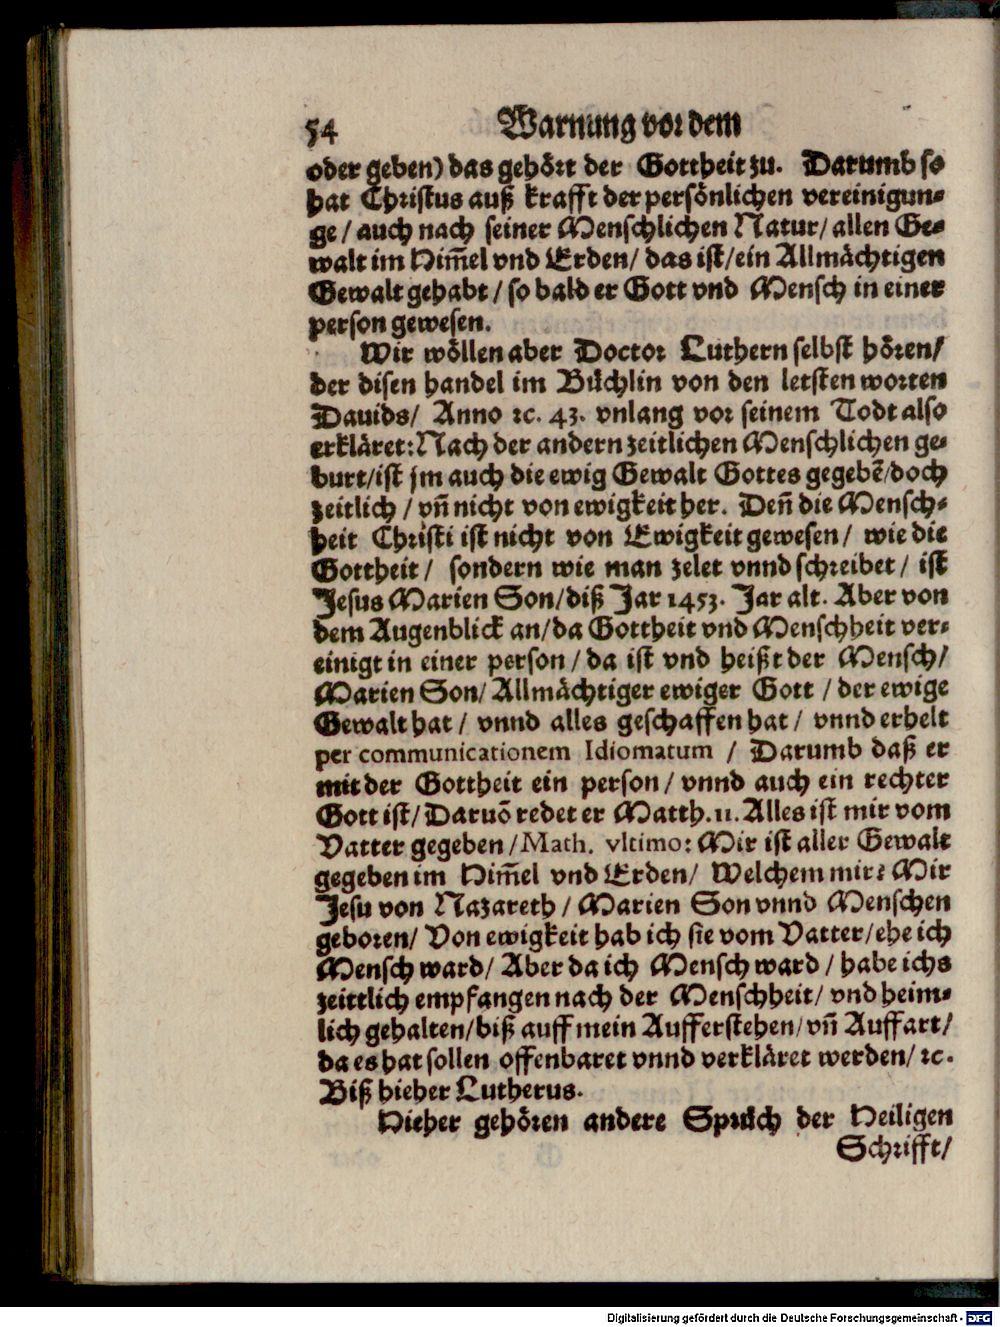 54 Warnung vor dem
oder geben) das gehört der Gottheit zu. Darumb so
hat Christus auß krafft der persönlichen vereinigun-
ge / auch nach seiner Menschlichen Natur / allen Ge-
walt im Him̃el vnd Erden / das ist / ein Allmächtigen
Gewalt gehabt / so bald er Gott vnd Mensch in einer
person gewesen.
Wir wöllen aber Doctor Luthern selbst hören /
der disen handel im Büchlin von den letsten worten
Dauids / Anno ꝛc. 43. vnlang vor seinem Todt also
erkläret: Nach der andern zeitlichen Menschlichen ge-
burt / ist jm auch die ewig Gewalt Gottes gegebẽ / doch
zeitlich / vñ nicht von ewigkeit her. Deñ die Mensch-
heit Christi ist nicht von Ewigkeit gewesen / wie die
Gottheit / sondern wie man zelet vnnd schreibet / ist
Jesus Marien Son / diß Jar 1453. Jar alt. Aber von
dem Augenblick an / da Gottheit vnd Menschheit ver-
einigt in einer person / da ist vnd heißt der Mensch /
Marien Son / Allmächtiger ewiger Gott / der ewige
Gewalt hat / vnnd alles geschaffen hat / vnnd erhelt
per communicationem Idiomatum / Darumb daß er
mit der Gottheit ein person / vnnd auch ein rechter
Gott ist / Daruõ redet er Matth. 11. Alles ist mir vom
Vatter gegeben / Math. vltimo: Mir ist aller Gewalt
gegeben im Him̃el vnd Erden / Welchem mir? Mir
Jesu von Nazareth / Marien Son vnnd Menschen
geboren / Von ewigkeit hab ich sie vom Vatter / ehe ich
Mensch ward / Aber da ich Mensch ward / habe ichs
zeittlich empfangen nach der Menschheit / vnd heim-
lich gehalten / biß auff mein Aufferstehen / vñ Auffart /
da es hat sollen offenbaret vnnd verkläret werden / ꝛc.
Biß hieher Lutherus.
Hieher gehören andere Sprüch der Heiligen
Schrifft /
Digitalisierung gefördert durch die Deutsche Forschungsgemeinschaft - DFG